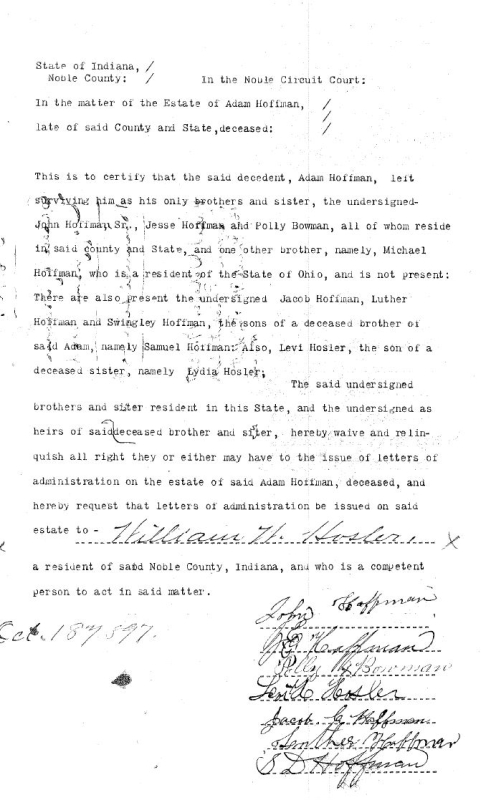 State of Indiana, /
Noble County: / In the Noble Circuit Court:
In the matter of the Estate of Adam Hoffman, /
/
late of said County and State,deceased: /
This is to certify that the said decedent, Adam Hoffman, left
surviving him as his only brothers and sister, the undersigned-
John Hoffman Sr., Jesse Hoffman and Polly Bowman, all of whom reside
in said county and State, and one other brother, namely, Michael
Hoffman, who is a resident of the State of Ohio, and is not present:
There are also present the undersigned Jacob Hoffman, Luther
Hoffman and Swingley Hoffman, the sons of a deceased brother of
said Adam, namely Samuel Hoffman: Also, Levi Hosler, the son of a
deceased sister, namely Lydia Hosler;
The said undersigned
brothers and sister resident in this State, and the undersigned as
heirs of said deceased brother and sister, hereby waive and relin-
quish all right they or either may have to the issue of letters of
administration on the estate of said Adam Hoffman, deceased, and
hereby request that letters of administration be issued on said
estate to - William W. Hosler, x
a resident of said Noble County, Indiana, and who is a competent
person to act in said matter.
John Hoffman
Hoffman
Oct. 18
Polly Bowman
Levi Hosler
Jacob G Hoffman
Luther Hoffman
S D Hoffman